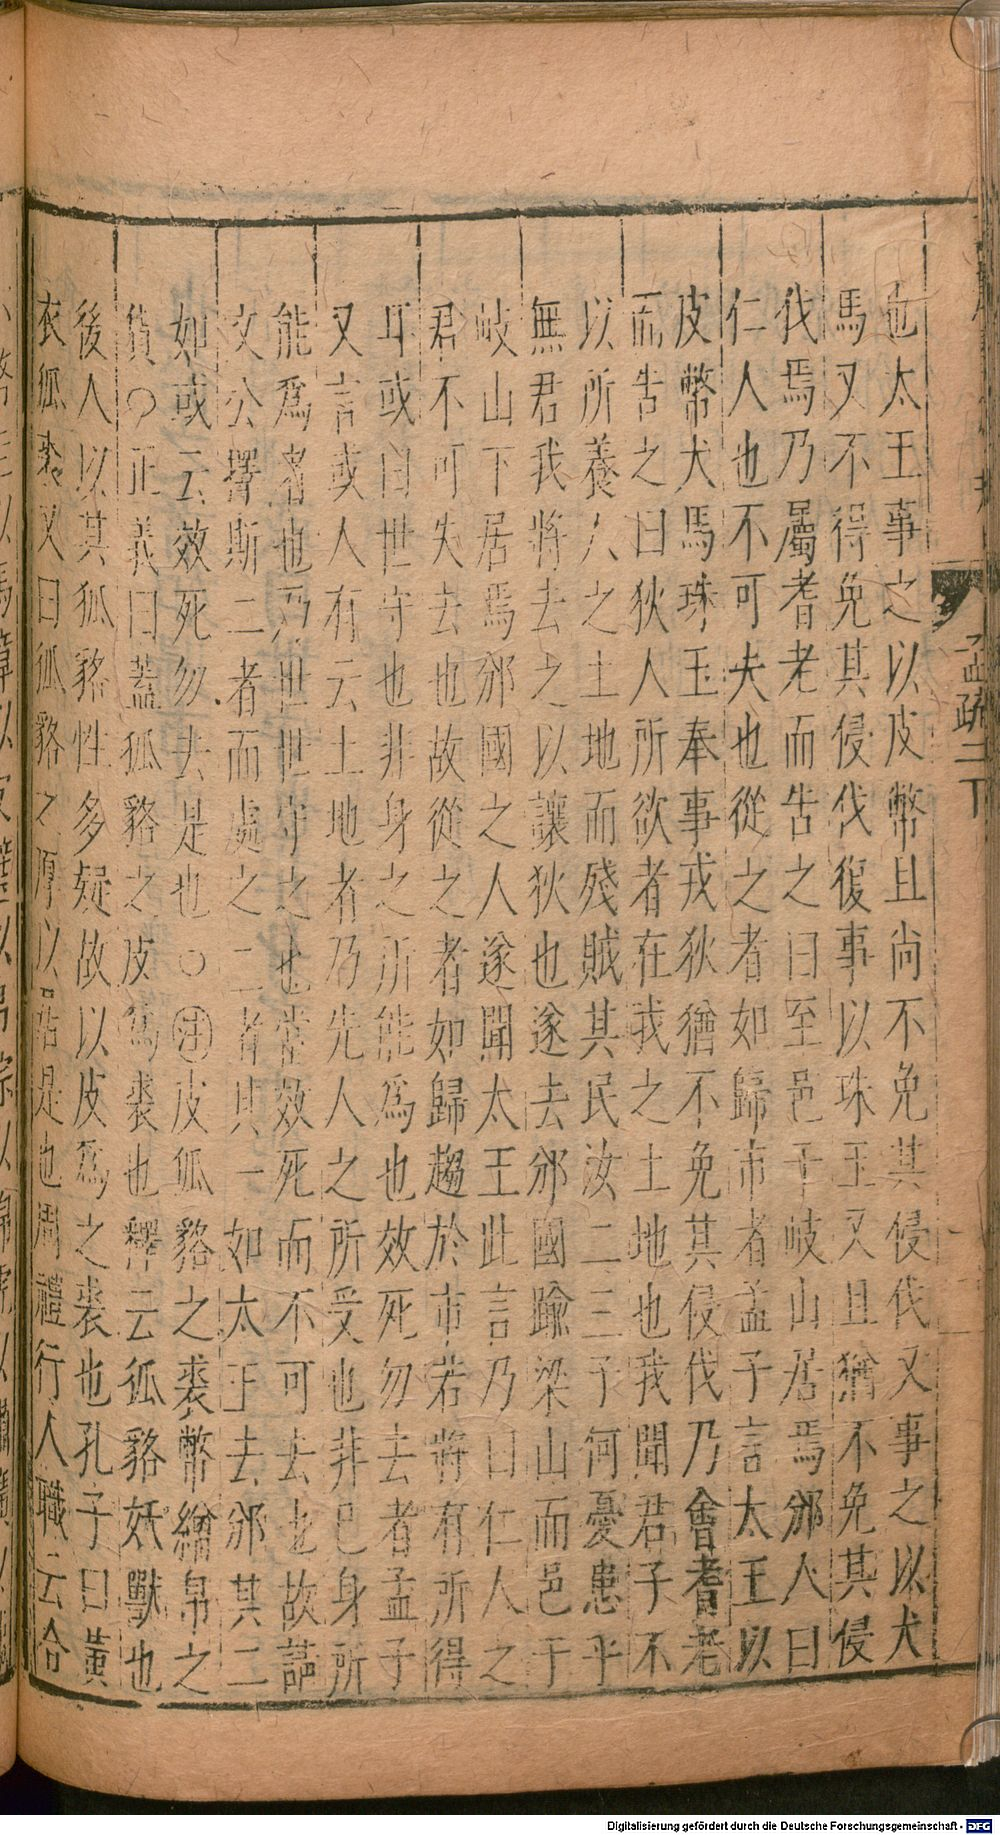 孟疏二下
也太王事之以皮幣且尚不免其侵伐又事之以犬
馬又不得免其侵伐復事以珠玉又且猶不免其侵
伐焉乃屬耆老而告之曰至邑于岐山居焉邠人曰
仁人也不可夫也從之者如歸市者孟子言太王以
皮幣犬馬珠玉奉事戎狄猶不免其侵伐乃會耆老
而告之曰狄人所欲者在我之土地也我聞君子不
以所養人之土地而殘賊其民汝二三子何憂患乎
無君我將去之以讓狄也遂去邠國踰梁山而邑于
岐山下居焉邠國之人遂聞太王此言乃曰仁人之
君不可失去也故從之者如歸趨於市若將有所得
耳或曰世守也非身之所能爲也效死勿去者孟子
又言或人有云土地者乃先人之所受也非已身所
能爲者也乃世世守之也當效死而不可去也故請
文公擇斯二者而處之二者其一如太王去邠其二
如或云效死勿去是也○注皮狐貉之裘幣繒帛之
貨○正義曰蓋狐貉之皮爲裘也釋云狐貉妖獸也
後人以其狐貉性多疑故以皮爲之裘也孔子曰黃
衣狐裘又曰狐貉之厚以居是也周禮行人職云合
Digitalisierung gefördert durch die Deutsche Forschungsgemeinschaft - DFG